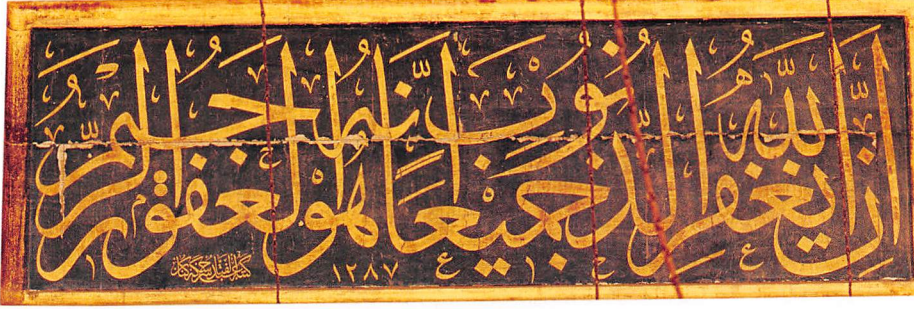 ان الله يغفر الذنوب جميعا انه هو الغفور الرحيم
١٢٨٧